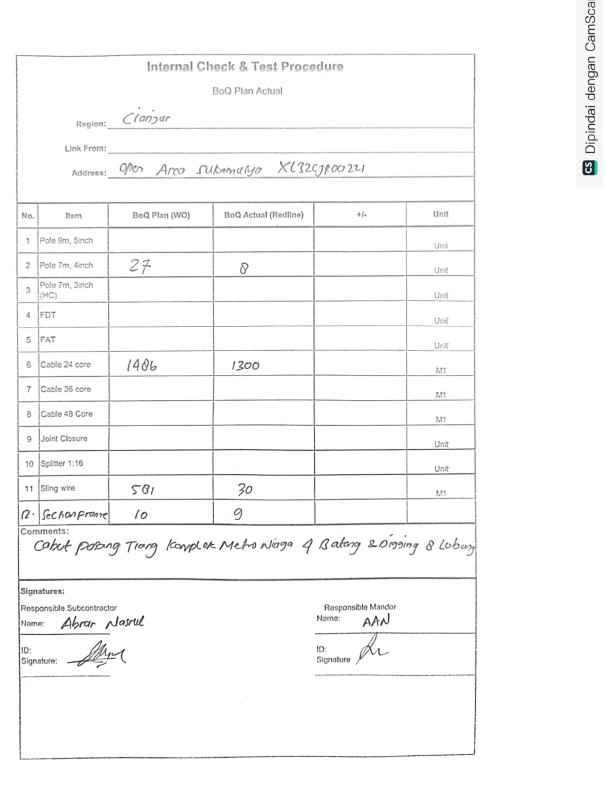 Internal Check & Test Procedure
BoQ Plan Actual
Region: Cianjur
Link From:
Address: Open Area Sukamulya XL32CJP00221
No. Item BoQ Plan (WO) BoQ Actual (Redline) +/- Unit
1 Pole 9m, 5inch Unit
2 Pole 7m, 4inch 27 8 Unit
3 Pole 7m, 3inch (HC) Unit
4 FDT Unit
5 FAT Unit
6 Cable 24 core 1406 1300 M1
7 Cable 36 core M1
8 Cable 48 Core M1
9 Joint Closure Unit
10 Splitter 1:16 Unit
11 Sling wire 501 30 M1
12. 10 9
Comments:
Cabut Pasang Tiang Komplek Metro Niaga 4 Batang & Digging 8 Lobang
Signatures:
Responsible Subcontractor Responsible Mandor
Name: Abrar Nasrul Name: AAN
ID: ID:
Signature: Signature
CS Dipindai dengan CamSca